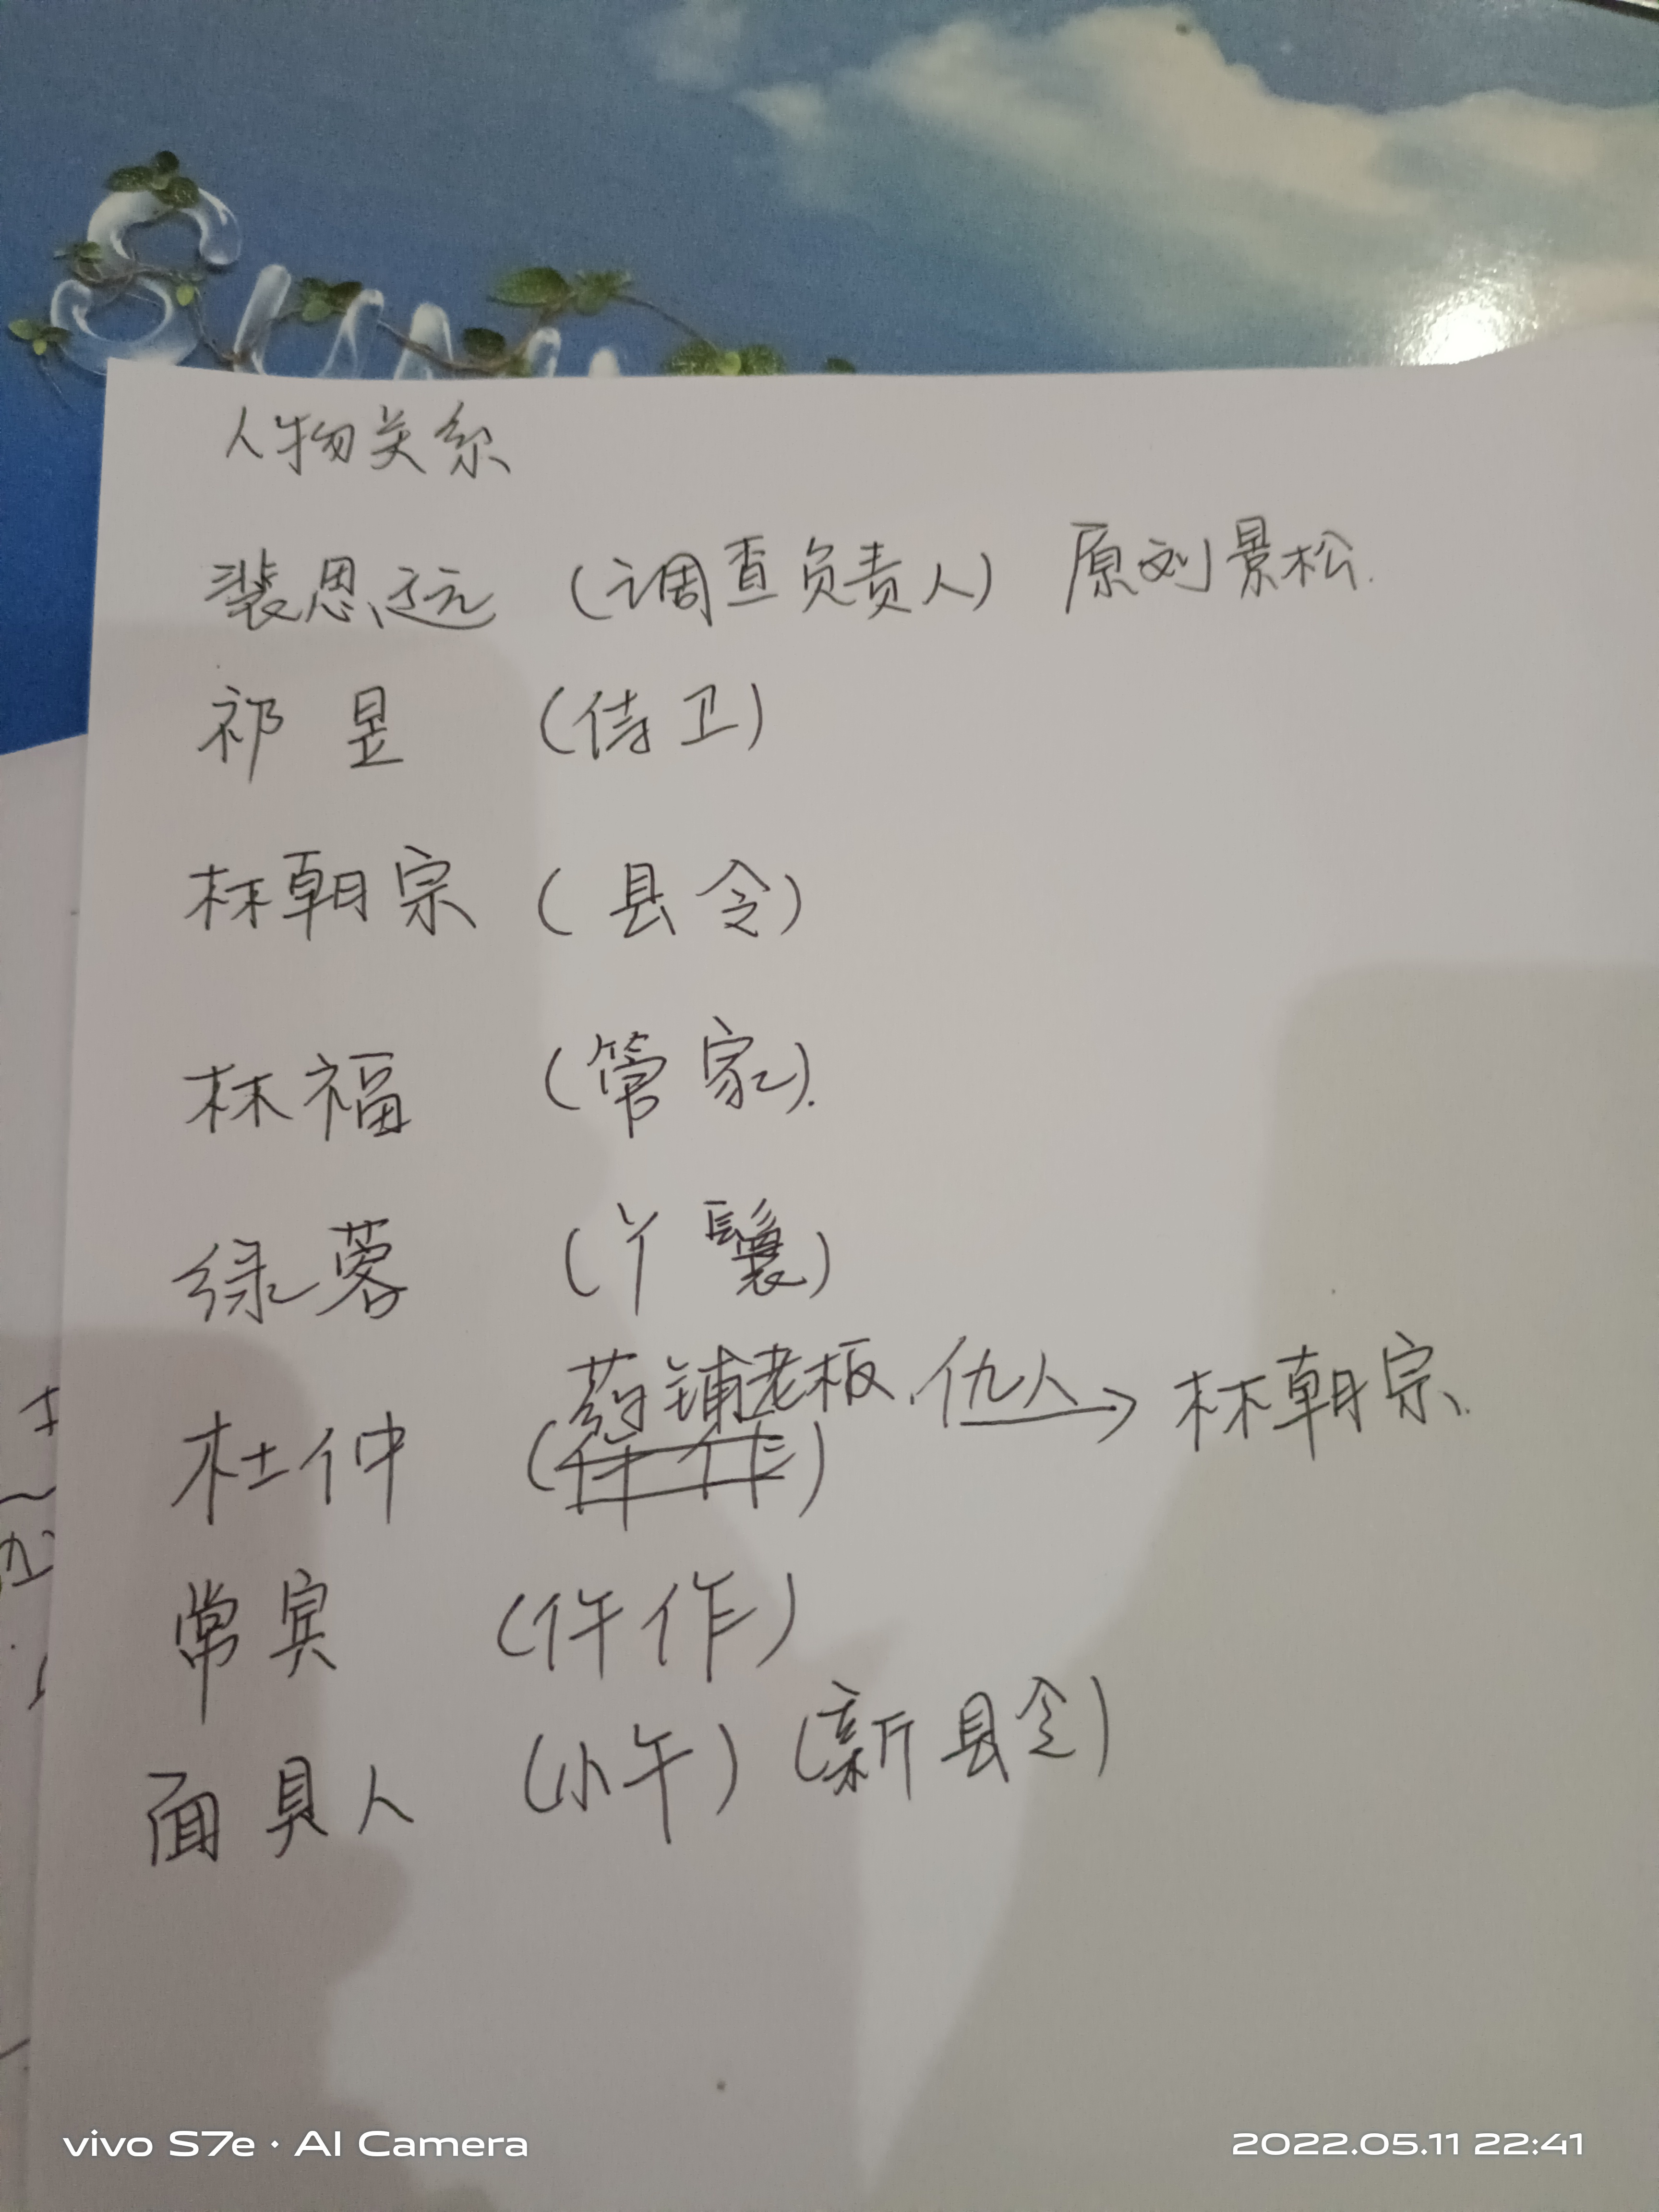 人物关系
裴思远 (调查负责人) 原刘景松.
祁昱 (侍卫)
林朝宗 (县令)
林福 (管家).
绿蓉 (丫鬟)
药铺老板,仇人→林朝宗.
杜仲 (仵作)
常宾 (仵作)
面具人 (小午) (新县令)
vivo S7e · AI Camera 2022.05.11 22:41